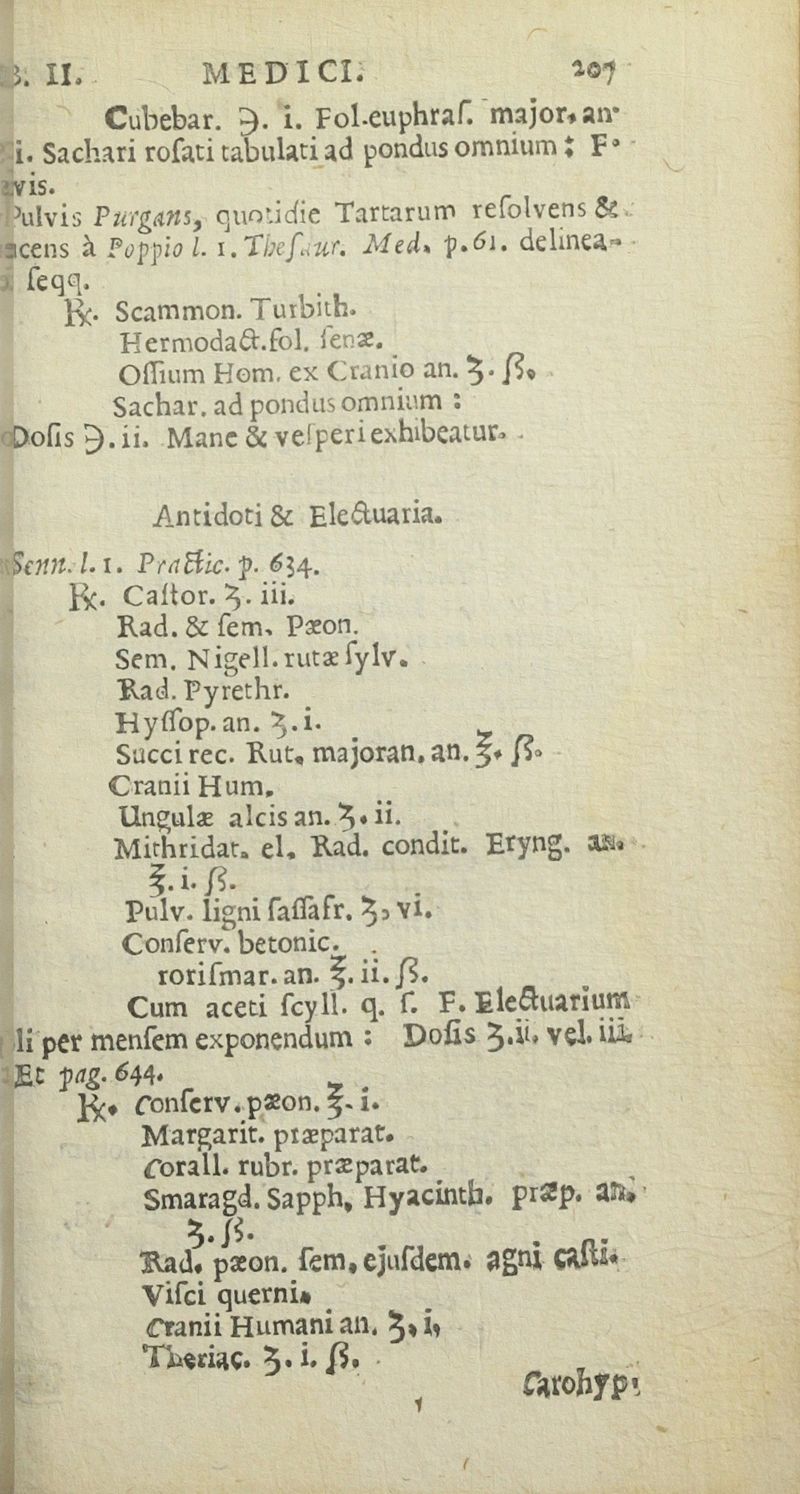 II. MEDICI. 207
Cubebar. ℈. i. Fol.euphraſ. major. an.
i. Sachari roſati tabulati ad pondus omnium : F.
vis.
Pulvis Purgans, quotidie Tartarum reſolvens &
acens à Poppio l. 1. Theſaur. Med. p. 61. delinea-
ſeqq.
℞. Scammon. Turbith.
Hermodact. fol. ſenæ.
Oſſium Hom. ex Cranio an. ʒ. ß.
Sachar. ad pondus omnium :
Doſis ℈. ii. Mane & veſperi exhibeatur.
Antidoti & Electuaria.
Senn. l. 1. Practic. p. 634.
℞. Caſtor. ʒ. iii.
Rad. & ſem. Pæon.
Sem. Nigell. rutæ ſylv.
Rad. Pyrethr.
Hyſſop. an. ʒ. i.
Succi rec. Rut. majoran. an. ℥. ß.
Cranii Hum.
Ungulæ alcis an. ʒ. ii.
Mithridat. el. Rad. condit. Eryng. an.
℥. i. ß.
Pulv. ligni ſaſſafr. ʒ. vi.
Conſerv. betonic.
roriſmar. an. ℥. ii. ß.
Cum aceti ſcyll. q. ſ. F. Electuarium
li per menſem exponendum : Doſis ʒ. ii. vel. iii.
Et pag. 644.
℞. Conſerv. pæon. ℥. i.
Margarit. præparat.
Corall. rubr. præparat.
Smaragd. Sapph. Hyacinth. præp. an.
ʒ. ß.
Rad. pæon. ſem. ejuſdem. agni caſti.
Viſci querni.
Cranii Humani an. ʒ. i.
Theriac. ʒ. i. ß.
Carohyp.